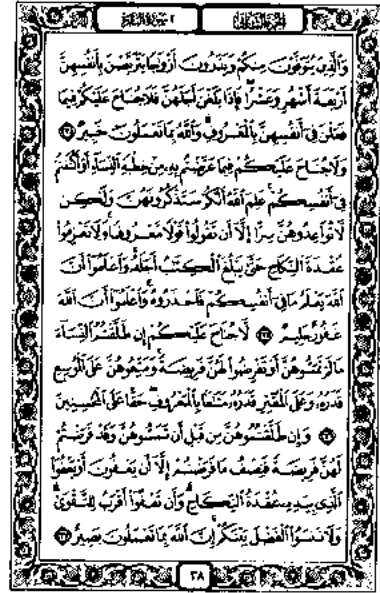 وَالَّذِينَ يُتَوَفَّوْنَ مِنكُمْ وَيَذَرُونَ أَزْوَاجًا يَتَرَبَّصْنَ بِأَنفُسِهِنَّ
أَرْبَعَةَ أَشْهُرٍ وَعَشْرًا فَإِذَا بَلَغْنَ أَجَلَهُنَّ فَلَا جُنَاحَ عَلَيْكُمْ فِيمَا
فَعَلْنَ فِي أَنفُسِهِنَّ بِالْمَعْرُوفِ وَاللَّهُ بِمَا تَعْمَلُونَ خَبِيرٌ ٢٣٤
وَلَا جُنَاحَ عَلَيْكُمْ فِيمَا عَرَّضْتُم بِهِ مِنْ خِطْبَةِ النِّسَاءِ أَوْ أَكْنَنتُمْ
فِي أَنفُسِكُمْ عَلِمَ اللَّهُ أَنَّكُمْ سَتَذْكُرُونَهُنَّ وَلَٰكِن
لَّا تُوَاعِدُوهُنَّ سِرًّا إِلَّا أَن تَقُولُوا قَوْلًا مَّعْرُوفًا وَلَا تَعْزِمُوا
عُقْدَةَ النِّكَاحِ حَتَّىٰ يَبْلُغَ الْكِتَابُ أَجَلَهُ وَاعْلَمُوا أَنَّ
اللَّهَ يَعْلَمُ مَا فِي أَنفُسِكُمْ فَاحْذَرُوهُ وَاعْلَمُوا أَنَّ اللَّهَ
غَفُورٌ حَلِيمٌ ٢٣٥ لَّا جُنَاحَ عَلَيْكُمْ إِن طَلَّقْتُمُ النِّسَاءَ
مَا لَمْ تَمَسُّوهُنَّ أَوْ تَفْرِضُوا لَهُنَّ فَرِيضَةً وَمَتِّعُوهُنَّ عَلَى الْمُوسِعِ
قَدَرُهُ وَعَلَى الْمُقْتِرِ قَدَرُهُ مَتَاعًا بِالْمَعْرُوفِ حَقًّا عَلَى الْمُحْسِنِينَ
٢٣٦ وَإِن طَلَّقْتُمُوهُنَّ مِن قَبْلِ أَن تَمَسُّوهُنَّ وَقَدْ فَرَضْتُمْ
لَهُنَّ فَرِيضَةً فَنِصْفُ مَا فَرَضْتُمْ إِلَّا أَن يَعْفُونَ أَوْ يَعْفُوَا
الَّذِي بِيَدِهِ عُقْدَةُ النِّكَاحِ وَأَن تَعْفُوا أَقْرَبُ لِلتَّقْوَىٰ
وَلَا تَنسَوُا الْفَضْلَ بَيْنَكُمْ إِنَّ اللَّهَ بِمَا تَعْمَلُونَ بَصِيرٌ ٢٣٧
٣٨